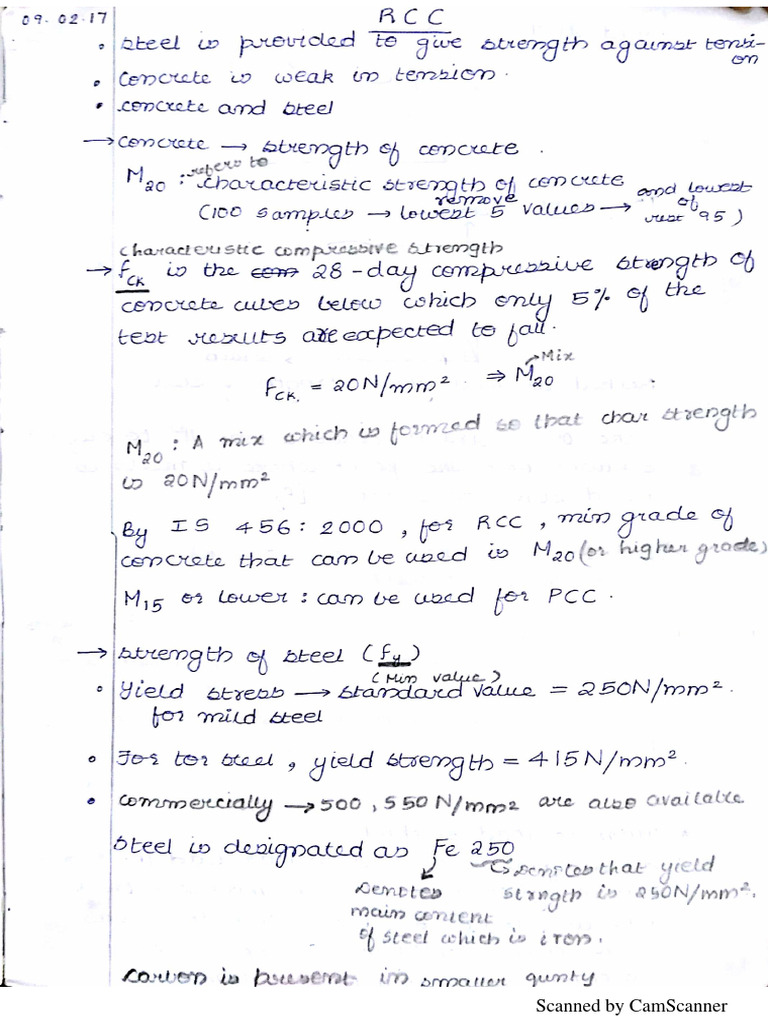 09.02.17
RCC
• Steel is provided to give strength against tensi-
on
• Concrete is weak in tension.
• concrete and steel
→ concrete → strength of concrete.
M20 : refers to characteristic strength of concrete
(100 samples → remove lowest 5 values → and lowest of rest 95)
characteristic compressive strength
→ fCK is the com 28-day compressive strength of
concrete cubes below which only 5% of the
test results are expected to fall.
fCK. = 20N/mm² ⇒ M20 → Mix
M20 : A mix which is formed so that char strength
is 20N/mm²
By IS 456: 2000, for RCC, min grade of
concrete that can be used is M20 (or higher grade)
M15 or lower : can be used for PCC.
→ strength of steel (fy)
(Min value)
• Yield stress → standard value = 250N/mm².
for mild steel
• For tor steel, yield strength = 415N/mm².
• commercially → 500, 550 N/mm2 are also available
Steel is designated as Fe 250
Denotes that yield
strngth is 250N/mm².
Denotes
main content
of steel which is iron.
carbon is present in smaller qunty
Scanned by CamScanner